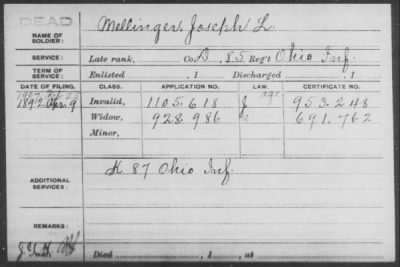 DEAD
NAME OF SOLDIER: Mellinger, Joseph L.
SERVICE: Late rank, Co. D, 85 Reg't Ohio Inf.
TERM OF SERVICE: Enlisted , 1 Discharged , 1
DATE OF FILING. CLASS. APPLICATION NO. LAW. CERTIFICATE NO.
Invalid, 1105.618 953.248
1892 Apr. 9 Widow, 928.986 691.762
Minor,
ADDITIONAL SERVICES: K 87 Ohio Inf.
REMARKS:
Died , 1 , at